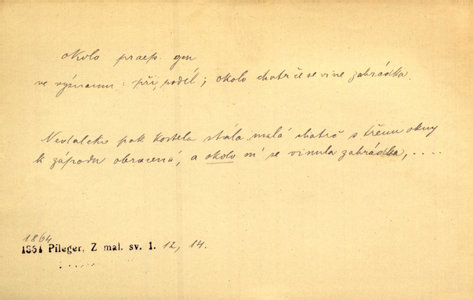 okolo praep. gen
ve významu: při, podél; okolo chatrče se vine zahrádka.
Nedaleko pak kostela stála malá chatrč s třemi okny
k západu obrácená, a okolo ní se vinula zahrádka, ....
1864
1861 Pfleger, Z mal. sv. 1. 12, 14.